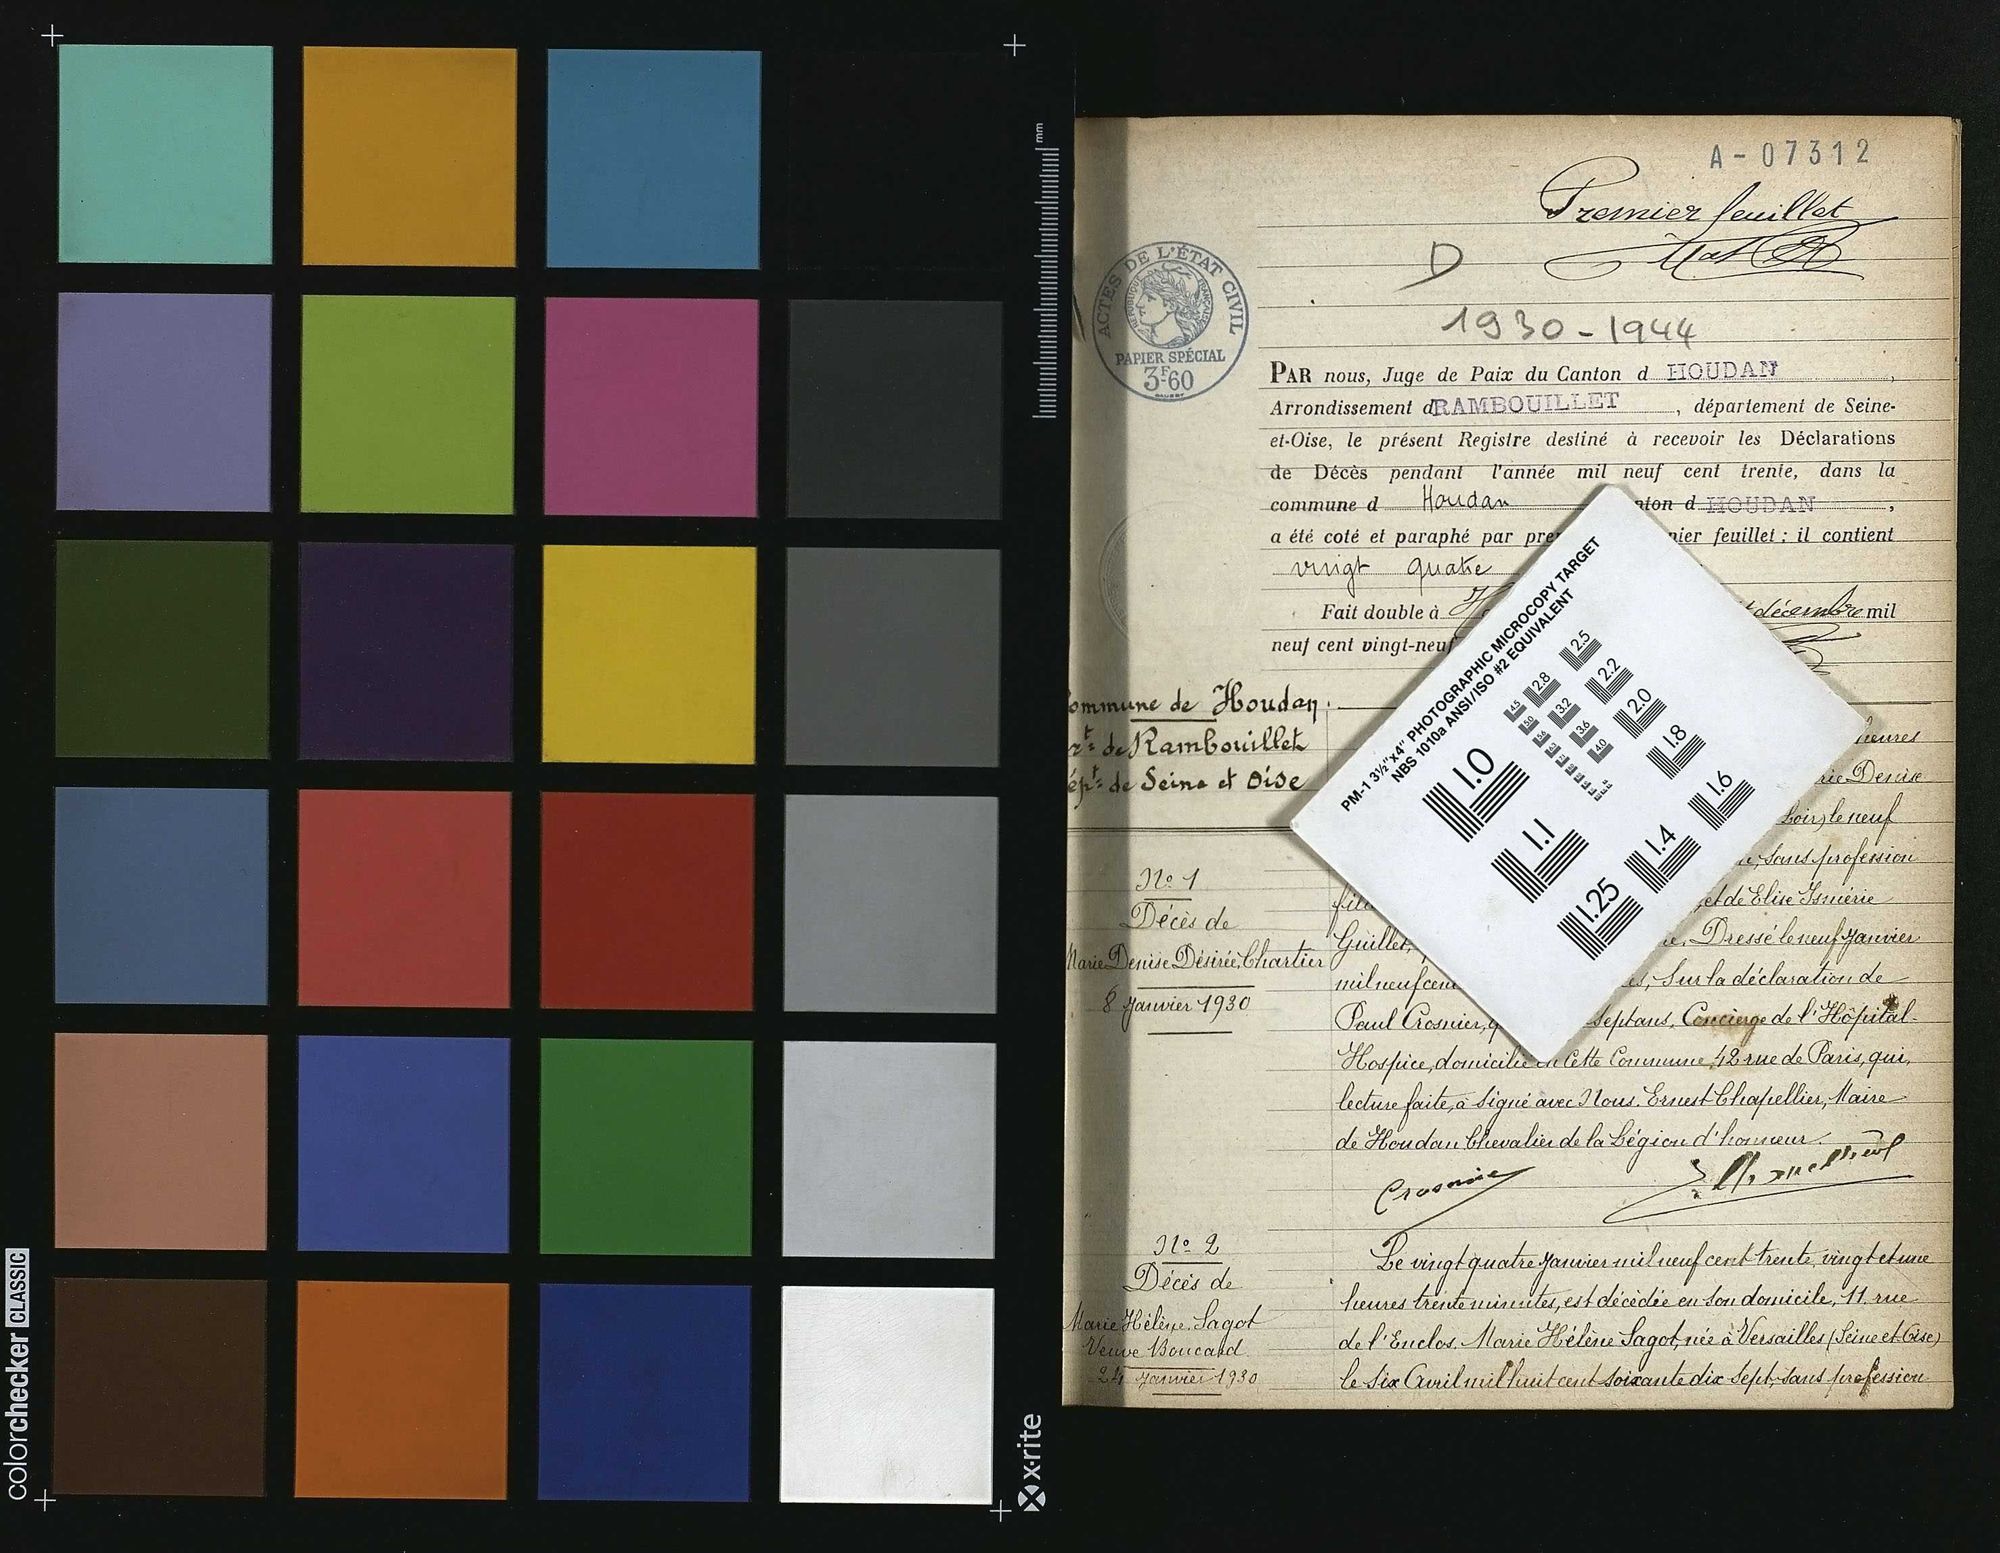 mm
colorchecker CLASSIC
x-rite
A-07312
Premier feuillet
D
1930-1944
ACTES DE L'ÉTAT CIVIL
RÉPUBLIQUE FRANÇAISE
PAPIER SPÉCIAL
3F60
PAR nous, Juge de Paix du Canton d HOUDAN,
Arrondissement d RAMBOUILLET, département de Seine-
et-Oise, le présent Registre destiné à recevoir les Déclarations
de Décès pendant l'année mil neuf cent trente, dans la
commune d Houdan nton d HOUDAN,
a été coté et paraphé par pre nier feuillet : il contient
vingt quatre
Fait double à décembre mil
neuf cent vingt-neuf
PM-1 3½"x4" PHOTOGRAPHIC MICROCOPY TARGET
NBS 1010a ANSI/ISO #2 EQUIVALENT
1.0
1.1
1.25
1.4
1.6
1.8
2.0
2.2
2.5
2.8
3.2
3.6
4.0
4.5
5.0
5.6
6.3
ommune de Houdan.
rt de Rambouillet
épt de Seine et Oise
heures
rie Denise
Loir) le neuf
sans profession
et de Elise Ismérie
Guillet, Dressé le neuf Janvier
mil neuf cen es, Sur la déclaration de
Paul Crosnier, q septans, Concierge de l'Hôpital-
Hospice, domicilié en cette Commune, 42 rue de Paris, qui,
lecture faite, a signé avec Nous. Ernest Chapellier, Maire
de Houdan Chevalier de la Légion d'honneur.
Crosnier
No 1
Décès de
Marie Denise Désirée Chartier
8 Janvier 1930
No 2
Décès de
Marie Hélène Sagot
Veuve Boucard
24 Janvier 1930
Le vingt quatre Janvier mil neuf cent trente, vingt et une
heures trente minutes, est décédée en son domicile, 11, rue
de l'Enclos. Marie Hélène Sagot, née à Versailles (Seine et Oise)
le six Avril mil huit cent soixante dix sept, sans profession